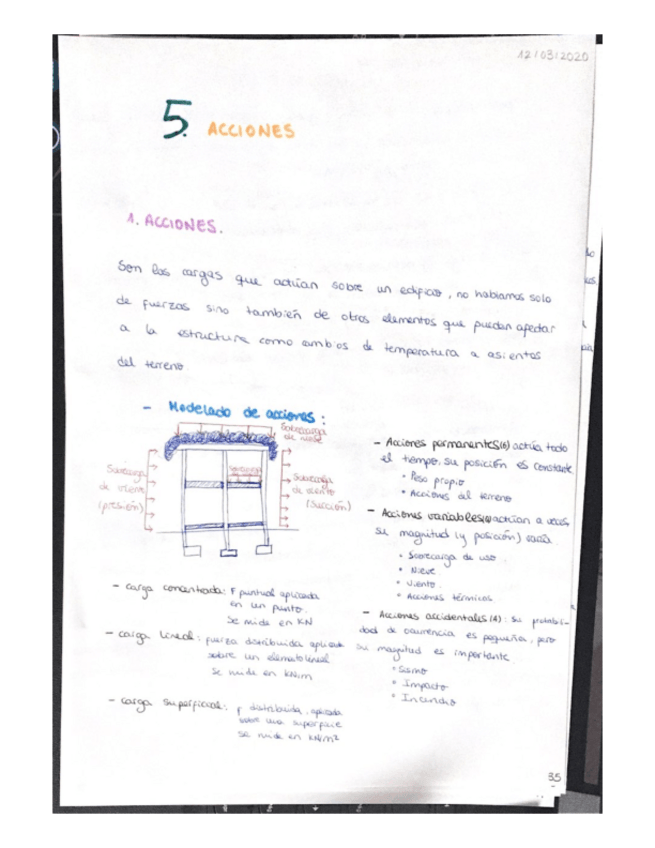 12/03/2020
5. ACCIONES
1. ACCIONES.
Son las cargas que actúan sobre un edificio, no hablamos solo
de fuerzas sino también de otros elementos que puedan afectar
a la estructura como cambios de temperatura a asientos
del terreno.
- Modelado de acciones:
Sobrecarga
de nieve
Sobrecarga
de viento
(presión)
Sobrecarga
de viento
(succión)
- carga concentrada: F puntual aplicada
en un punto.
Se mide en KN
- carga lineal: fuerza distribuida aplicada
sobre un elemento lineal
Se mide en KN/m
- carga superficial: F distribuida, aplicada
sobre una superficie
se mide en KN/m2
- Acciones permanentes(G) actúa todo
el tiempo, su posición es constante
• Peso propio
• Acciones del terreno
- Acciones variables(Q) actúan a veces
su magnitud (y posición) varía.
• Sobrecarga de uso.
• Nieve.
• Viento.
• Acciones térmicas.
- Acciones accidentales (A): su probabili-
dad de ocurrencia es pequeña, pero
su magnitud es importante.
• Sismo
• Impacto
• Incendio
35